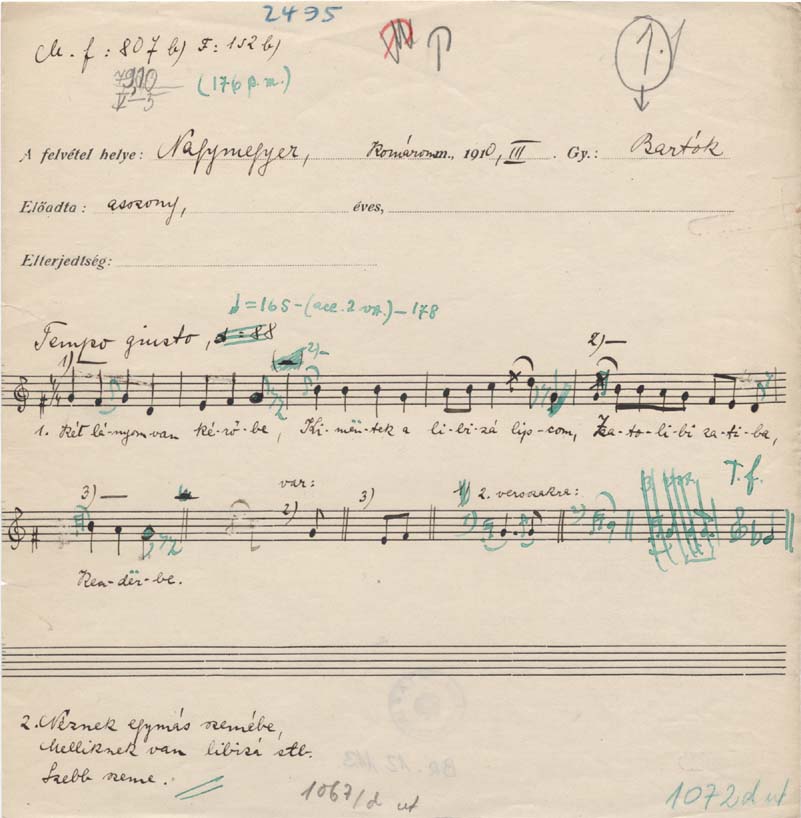 2495
M. f: 807 b) F: 152 b)
(176 p.m.)
1.
A felvétel helye: Nagymegyer, Komárom m., 1910, III. Gy.: Bartók
Előadta: asszony, éves,
Elterjedtség:
=165-(acc. 2 vsz.)-178
Tempo giusto, = 88
1) 2) 2)
1. Két lá-nyom van ké-rő-be, Ki-mën-tek a li-bi-zá lips-com, Za-to-li-bi za-ti-ba,
3) var: 2) 3) 2. versszakra: T. f.
Ken-dër-be.
2. Néznek egymás szemébe,
Melliknek van libizá stb.
Szebb szeme.
1067/d ut
1072 d ut